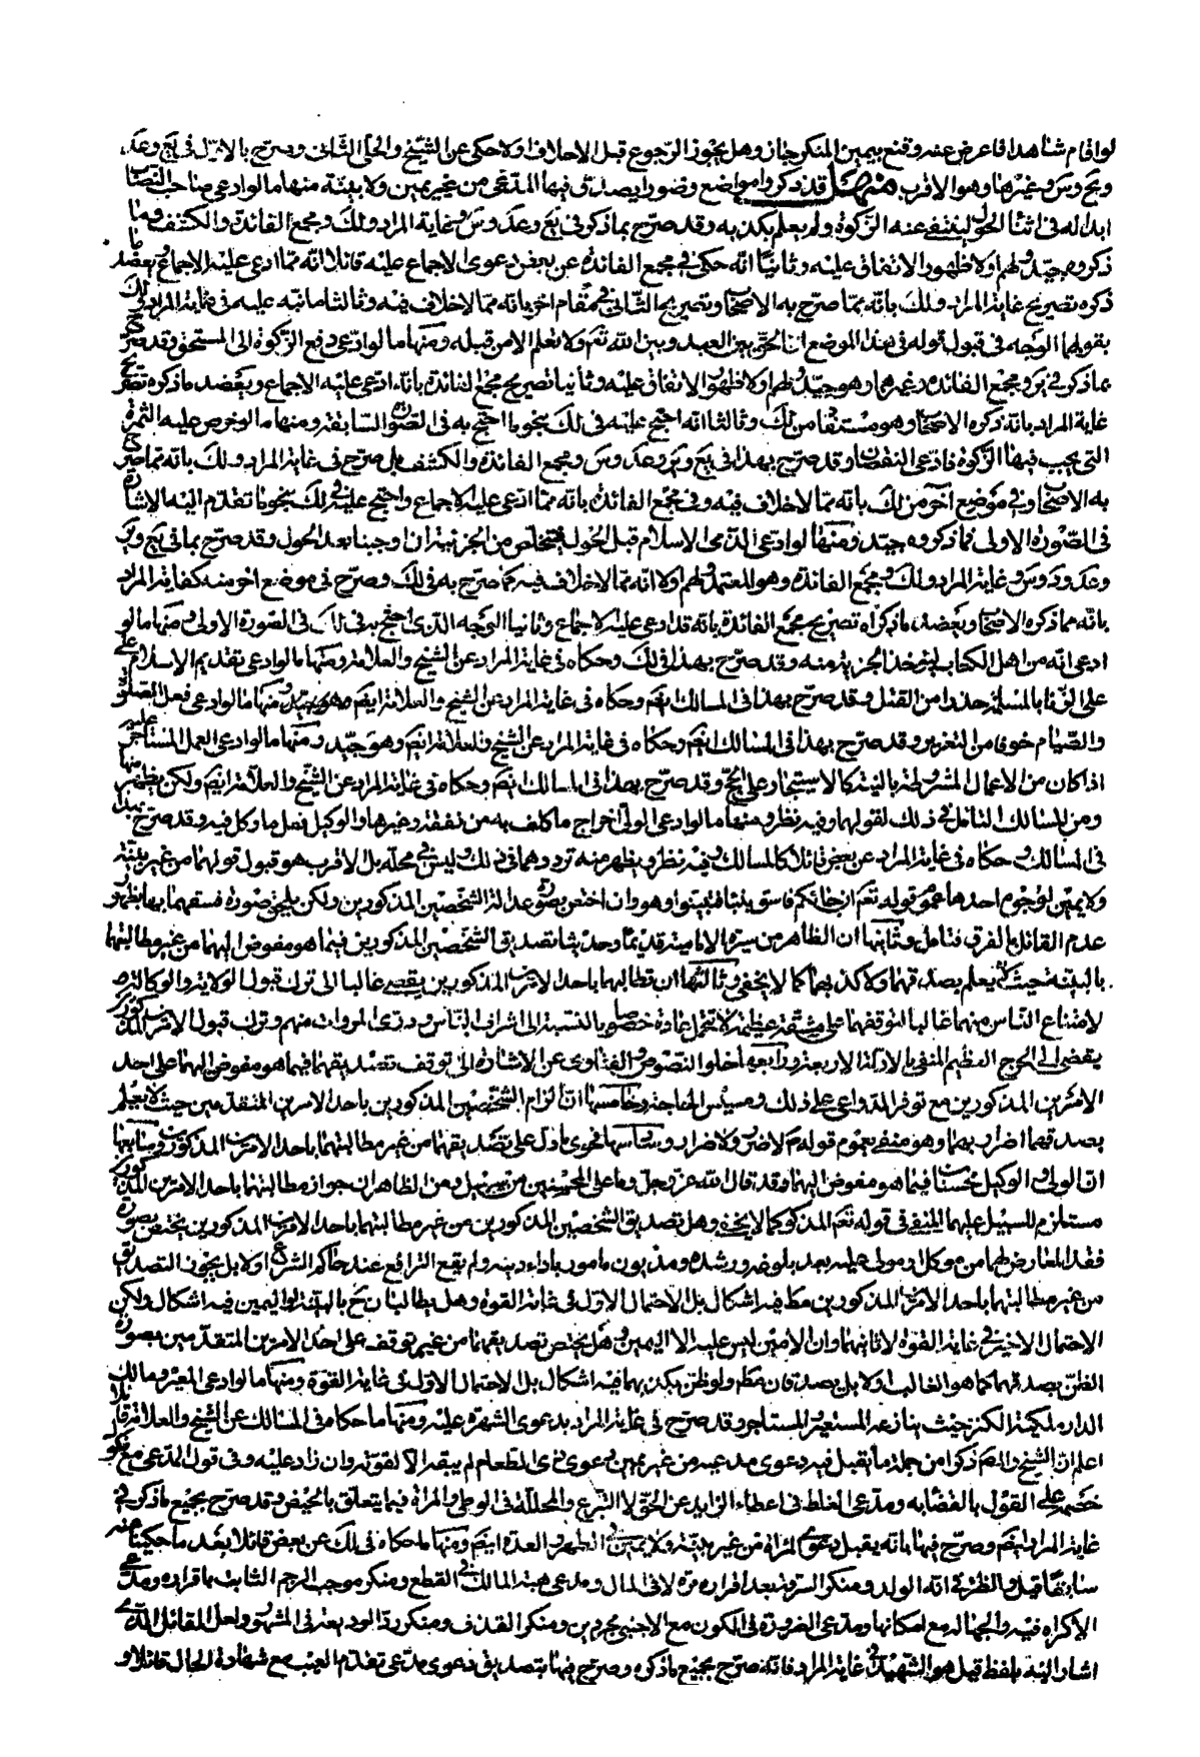 لو اقام شاهدا فاعرض عنه وقنع بيمين المنكر جاز وهل يجوز الرجوع قبل الاحلاف او لا حكى عن الشيخ والحلى الثانى وصرح بالاول فى يع وعد
ويح وس وغيرها وهو الاقرب منهل قد ذكروا مواضع وصورا يصدق فيها المدعى من غير يمين ولا بينة منها ما لو ادعى صاحب النصاب
ابداله فى اثناء الحول لينتفى عنه الزكوة ولم يعلم بكذبه وقد صرح بما ذكر فى يع وعد وس وغاية المراد ولك ومجمع الفائدة والكشف وما
ذكروه جيد ولهم اولا ظهور الاتفاق عليه وثانيا انه حكى فى مجمع الفائدة عن بعض دعوى الاجماع عليه قائلا انه مما ادعى عليه الاجماع ويعضد ما
ذكره تصريح غاية المراد ولك بانه مما صرح به الاصحاب وتصريح الثانى فى مقام اخر بانه مما لا خلاف فيه وثالثا ما نبه عليه فى غاية المراد ولك
بقولهما الوجه فى قبول قوله فى هذا الموضع ان الحق بين العبد وبين الله تعم ولا يعلم الا من قبله ومنها ما لو ادعى دفع الزكوة الى المستحق وقد صرح
بما ذكر فى ير ومجمع الفائدة وغيرهما وهو جيد ولهم اولا ظهور الاتفاق عليه وثانيا تصريح مجمع الفائدة بانه ادعى عليه الاجماع ويعضد ما ذكره تصريح
غاية المراد بانه ذكره الاصحاب وهو مستفاد من لك وثالثا انه احتج عليه فى لك بنحو ما احتج به فى الصورة السابقة ومنها ما لو خرص عليه الثمرة
التى يجب فيها الزكوة فادعى النقصان وقد صرح بهذا فى يع وير وعد وس ومجمع الفائدة والكشف بل صرح فى غاية المراد ولك بانه مما صرح
به الاصحاب وفى موضع آخر من لك بانه مما لا خلاف فيه وفى مجمع الفائدة بانه مما ادعى عليه الاجماع واحتج عليه فى لك بنحو ما تقدم اليه الاشارة
فى الصورة الاولى فما ذكروه جيد ومنها لو ادعى الذمى الاسلام قبل الحول فيتخلص من الجزية ان اوجبناها بعد الحول وقد صرح بما فى يع وير
وعد ود وس وغاية المراد ولك ومجمع الفائدة وهو المعتمد ولهم اولا انه مما لا خلاف فيه كما صرح به فى لك وصرح فى موضع اخر منه كغاية المراد
بانه مما ذكره الاصحاب ويعضد ما ذكراه تصريح مجمع الفائدة بانه قد ادعى عليه الاجماع وثانيا الوجه الذى احتج به فى لك فى الصورة الاولى ومنها ما لو
ادعى انه من اهل الكتاب ليؤخذ الجزية منه وقد صرح بهذا فى لك وحكاه فى غاية المراد عن الشيخ والعلامة ومنها ما لو ادعى تقديم الاسلام
على الزنا بالمسلمة حذرا من القتل وقد صرح بهذا فى المسالك ايضم وحكاه فى غاية المراد عن الشيخ والعلامة ايضم وهو جيد ومنها ما لو ادعى فعل الصلوة
والصيام خوفا من التعزير وقد صرح بهذا فى المسالك ايضم وحكاه فى غاية المراد عن الشيخ والعلامة ايضم وهو جيد ومنها ما لو ادعى العمل المستاجر عليه
اذا كان من الاعمال المشروطة بالنية كالاستيجار على الحج وقد صرح بهذا فى المسالك ايضم وحكاه فى غاية المراد عن الشيخ والعلامة ايضم ولكن يظهر منها
ومن المسالك التامل فى ذلك لقولهما وفيه نظر ومنها ما لو ادعى الولى اخراج ما كلف به من نفقة وغيرها والوكيل فعل ما وكل فيه وقد صرح بهذا
فى المسالك وحكاه فى غاية المراد عن بعض قائلا كالمسالك وفيه نظر ويظهر منه ترددهما فى ذلك وليس فى محله بل الاقرب هو قبول قولهما من غير بينة
ولا يمين لوجوه احدها عموم قوله تعم ان جائكم فاسق بنبا فتبينوا وهو وان اختص بصورة عدالة الشخصين المذكورين ولكن يلحق صورة فسقهما بها بظهور
عدم القائل بالفرق فتامل وثانيها ان الظاهر من سيرة الامامية قديما وحديثا تصديق الشخصين المذكورين فيما هو مفوض اليهما من غير مطالبتهما
بالبينة حيث لا يعلم بصدقهما ولا كذبهما كما لا يخفى وثالثها ان مطالبتهما باحد الامرين المذكورين يقضى غالبا الى ترك قبول الولاية والوكالة
لامتناع الناس منهما غالبا لتوقفهما على مشقة عظيمة لا تتحمل عادة خصوصا بالنسبة الى اشراف الناس وذوى المروات منهم وترك قبول الامرين المذكورين
يفضى الى الحرج العظيم المنفى بالادلة الاربعة ورابعها خلو النصوص والفتاوى عن الاشارة الى توقف تصديقهما فيما هو مفوض اليهما على احد
الامرين المذكورين مع توفر الدواعى على ذلك ومسيس الحاجة وخامسها ان الزام الشخصين المذكورين باحد الامرين المتقدمين حيث لا يعلم
بصدقهما اضرار بهما وهو منفى بعموم قوله م لا ضرر ولا ضرار وسادسها فحوى ما دل على تصديقهما من غير مطالبتهما باحد الامرين المذكورين وسابعها
ان الولى والوكيل محسنان فيما هو مفوض اليهما وقد قال الله عز وجل وما على المحسنين من سبيل ومن الظاهر ان جواز مطالبتهما باحد الامرين المذكورين
مستلزم للسبيل عليهما المنفى فى قوله تعم المذكور كما لا يخفى وهل تصديق الشخصين المذكورين من غير مطالبتهما باحد الامرين المذكورين يختص بصورة
فقد المعارض لهما من موكل ومولى عليه بعد بلوغه ورشده ومديون مامور باداء دينه ولم يقع الترافع عند حاكم الشرع او لا بل يجوز التصديق
من غير مطالبتهما باحد الامرين المذكورين مط فيه اشكال بل الاحتمال الاول فى غاية القوة وهل يطالبان ح بالبينة او اليمين فيه اشكال ولكن
الاحتمال الاخير فى غاية القوة لانهما وان الامين ليس عليه الا اليمين وهل يختص تصديقهما من غير توقف على احد الامرين المتقدمين بصورة
الظن بصدقهما كما هو الغالب او لا بل يصدقان مط ولو ظن بكذبهما فيه اشكال بل الاحتمال الاول فى غاية القوة ومنها ما لو ادعى المعير ومالك
الدار ملكية الكنز حيث ينازعه المستعير والمستاجر وقد صرح فى غاية المراد بدعوى الشهرة عليه ومنها ما حكاه فى المسالك عن الشيخ والعلامة قائلا
اعلم ان الشيخ والمصم ذكرا من جملة ما يقبل فيه دعوى مدعيه من غير يمين دعوى ذى الطعام لم يبقه الا لقوته وان زاد عليه وفى قول المدعى مع نكول
خصمه على القول بالقضاء به ومدعى الغلط فى اعطاء الزايد عن الحق لا التبرع والمحللة فى الوطى والمراة فيما يتعلق بالحيض وقد صرح بجميع ما ذكر فى
غاية المراد ايضم وصرح فيها بانه يقبل دعوى المراة من غير بينة ولا يمين فى الطهر والعدة ايضم ومنها ما حكاه فى لك عن بعض قائلا بعد ما حكينا عنه
سابقا قيل والظئر فى انه الولد ومنكر السرقة بعد اقراره مرة لا فى المال ومدعى هبة المالك فى القطع ومنكر موجب الرجم الثابت باقراره ومدعى
الاكراه فيه والجهالة مع امكانها ومدعى الضرورة فى الكون مع الاجنبى مجردين ومنكر القذف ومنكر ردة الود بعة فى المشهور ولعل القائل الذى
اشار اليه بلفظ قيل هو الشهيد فى غاية المراد فانه صرح بجميع ما ذكره وصرح فيها بتصديق دعوى مدعى تقدم العيب مع شهادة الحال قائلا و